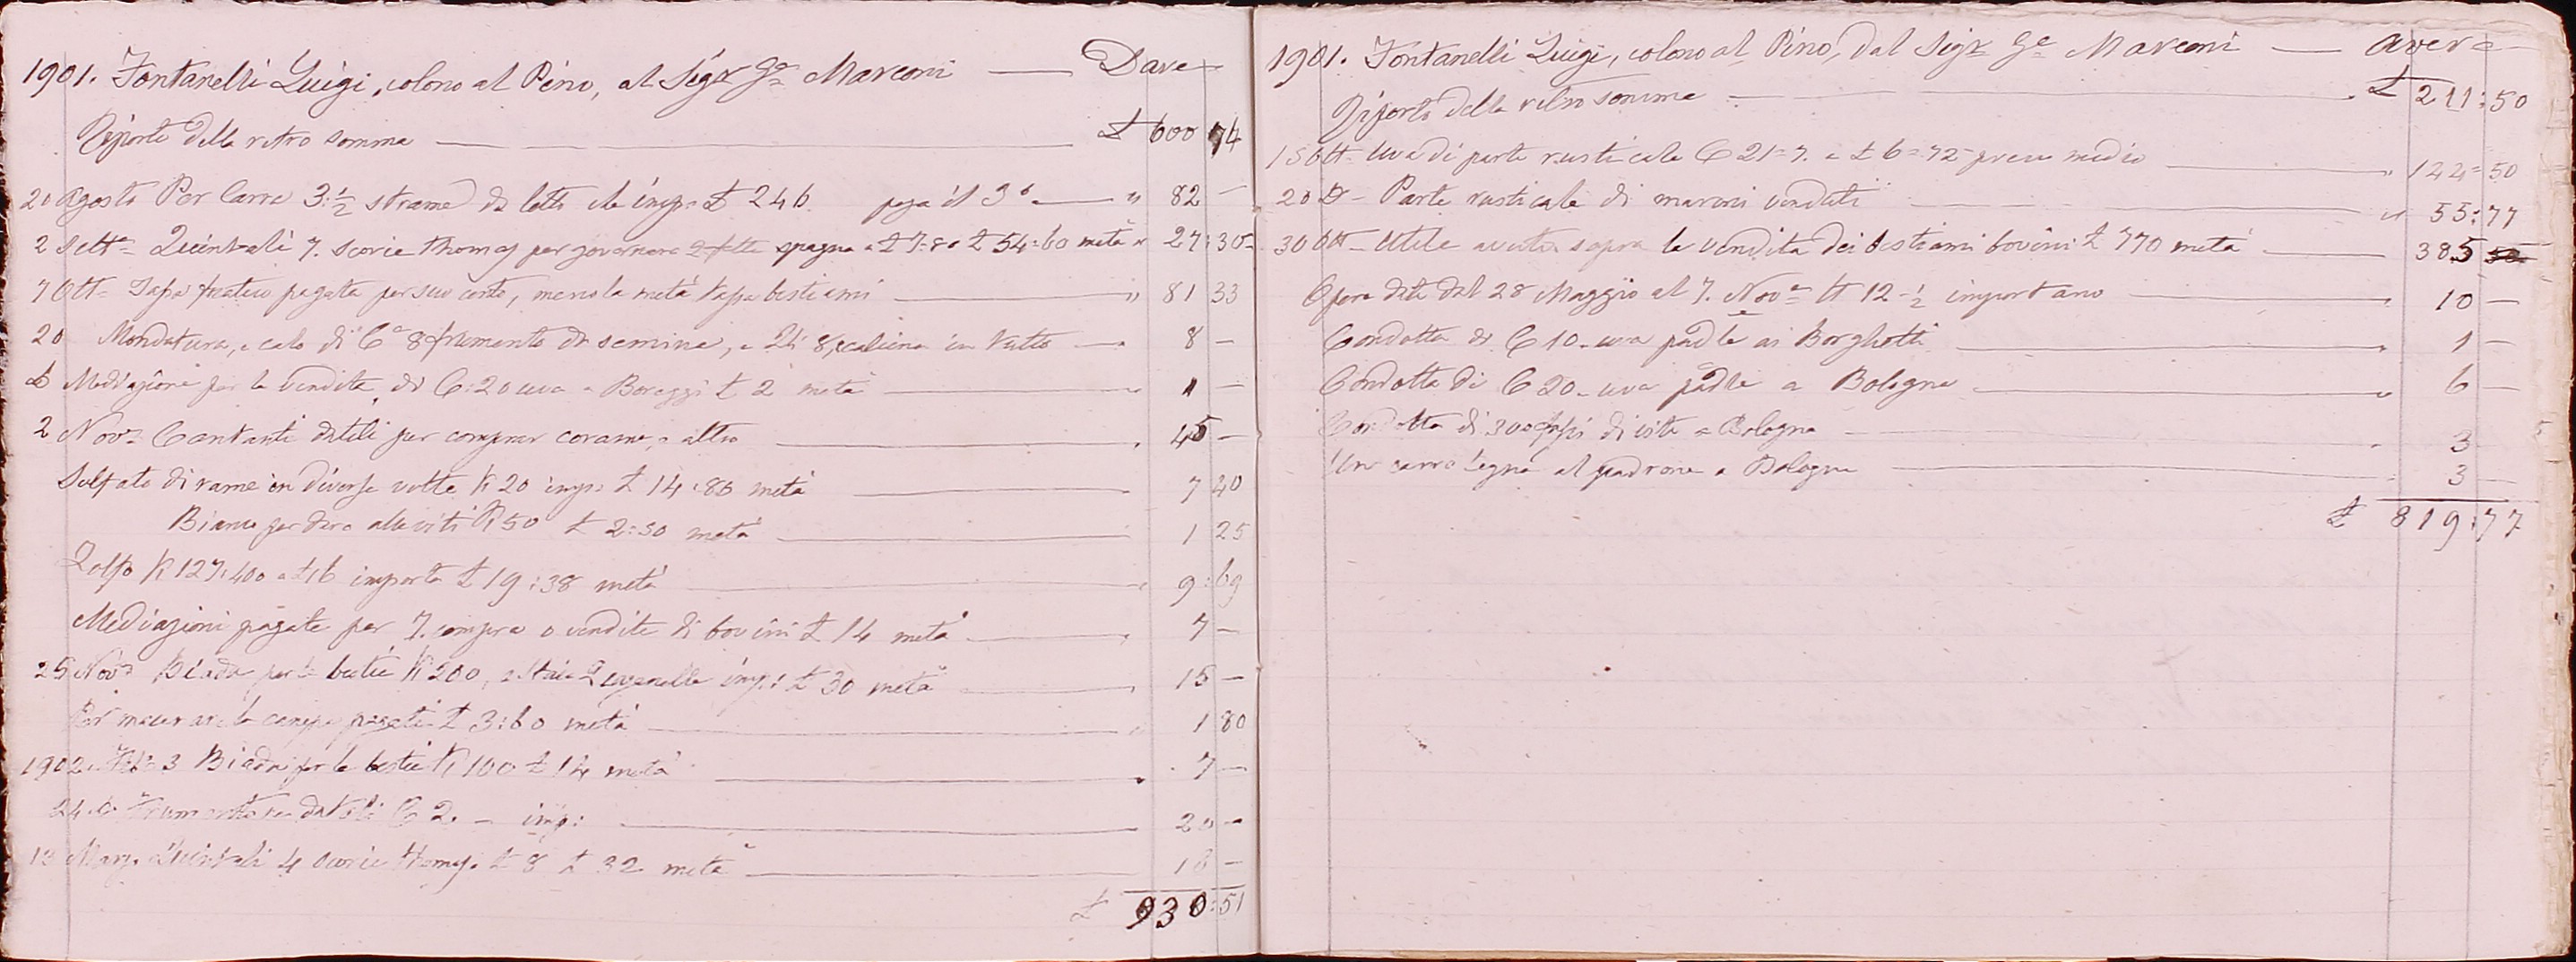 1901. Fontanelli Luigi, colono al Pino, al Sigr Ge Marconi — Dare
Riporto della retro somma — £ 600 74
20 Agosto Per Carra 3:½ strame da letto che imp: £ 246. paga il 3° — " 82 —
2 Sette Quintali 7. scorie Thomas per governare spagna a £ 7:80 £ 54=60 metà " 27:30
7 Ott= Tassa pagata per suo conto, meno la metà tassa bestiami — " 81 33
20 Mondatura, e calo di Ca 8 frumento da semina, e in tutto — " 8 —
D Mediazione per la vendita di C: 20 uva a Boreggi £ 2 metà — " 1 —
2 Nove Contanti datili per comprar corame, e altro — " 45 —
Solfato di rame in diverse volte K 20 imp: £ 14:80 metà — 7 40
Bianco per dare alle viti K 50 £ 2:50 metà — 1 25
Zolfo K 127:400 importa £ 19:38 metà — 9:69
Mediazioni pagate per 7. compre o vendite di bovini £ 14 metà — 7 —
25 Nove Biada per le bestie K 200, imp: £ 30 metà — 15 —
Per macerare la canepa pagati £ 3:60 metà — 1 80
1902. Feb: 3 Biada per le bestie K 100 £ 14 metà — 7 —
24 d: Frumentone datoli C 2. — imp: — 20 —
13 Marz. Quintali 4 scorie Thomas. £ 8 £ 32 metà — 16 —
£ 930:51
1901. Fontanelli Luigi, colono al Pino, dal Sigr Ge Marconi — Avere
Riporto della retro somma — £ 211:50
15 Ott= Uva di parte rusticale C 21=7. a £ 6=72 prezzo medio — " 144=50
20 D= Parte rusticale di maroni venduti — " 55:77
30 Ott= Utile avuto sopra la vendita dei bestiami bovini £ 770 metà — 385
Opere date dal 28 Maggio al 7. Nove N 12-½ importano — 10 —
Condotta di C 10. uva padle ai Borghetti — 1 —
Condotta di C 20. uva padle a Bologna — 6 —
Condotta di 300 di vite a Bologna — 3
Un carro legna al padrone a Bologna — 3 —
£ 819:77